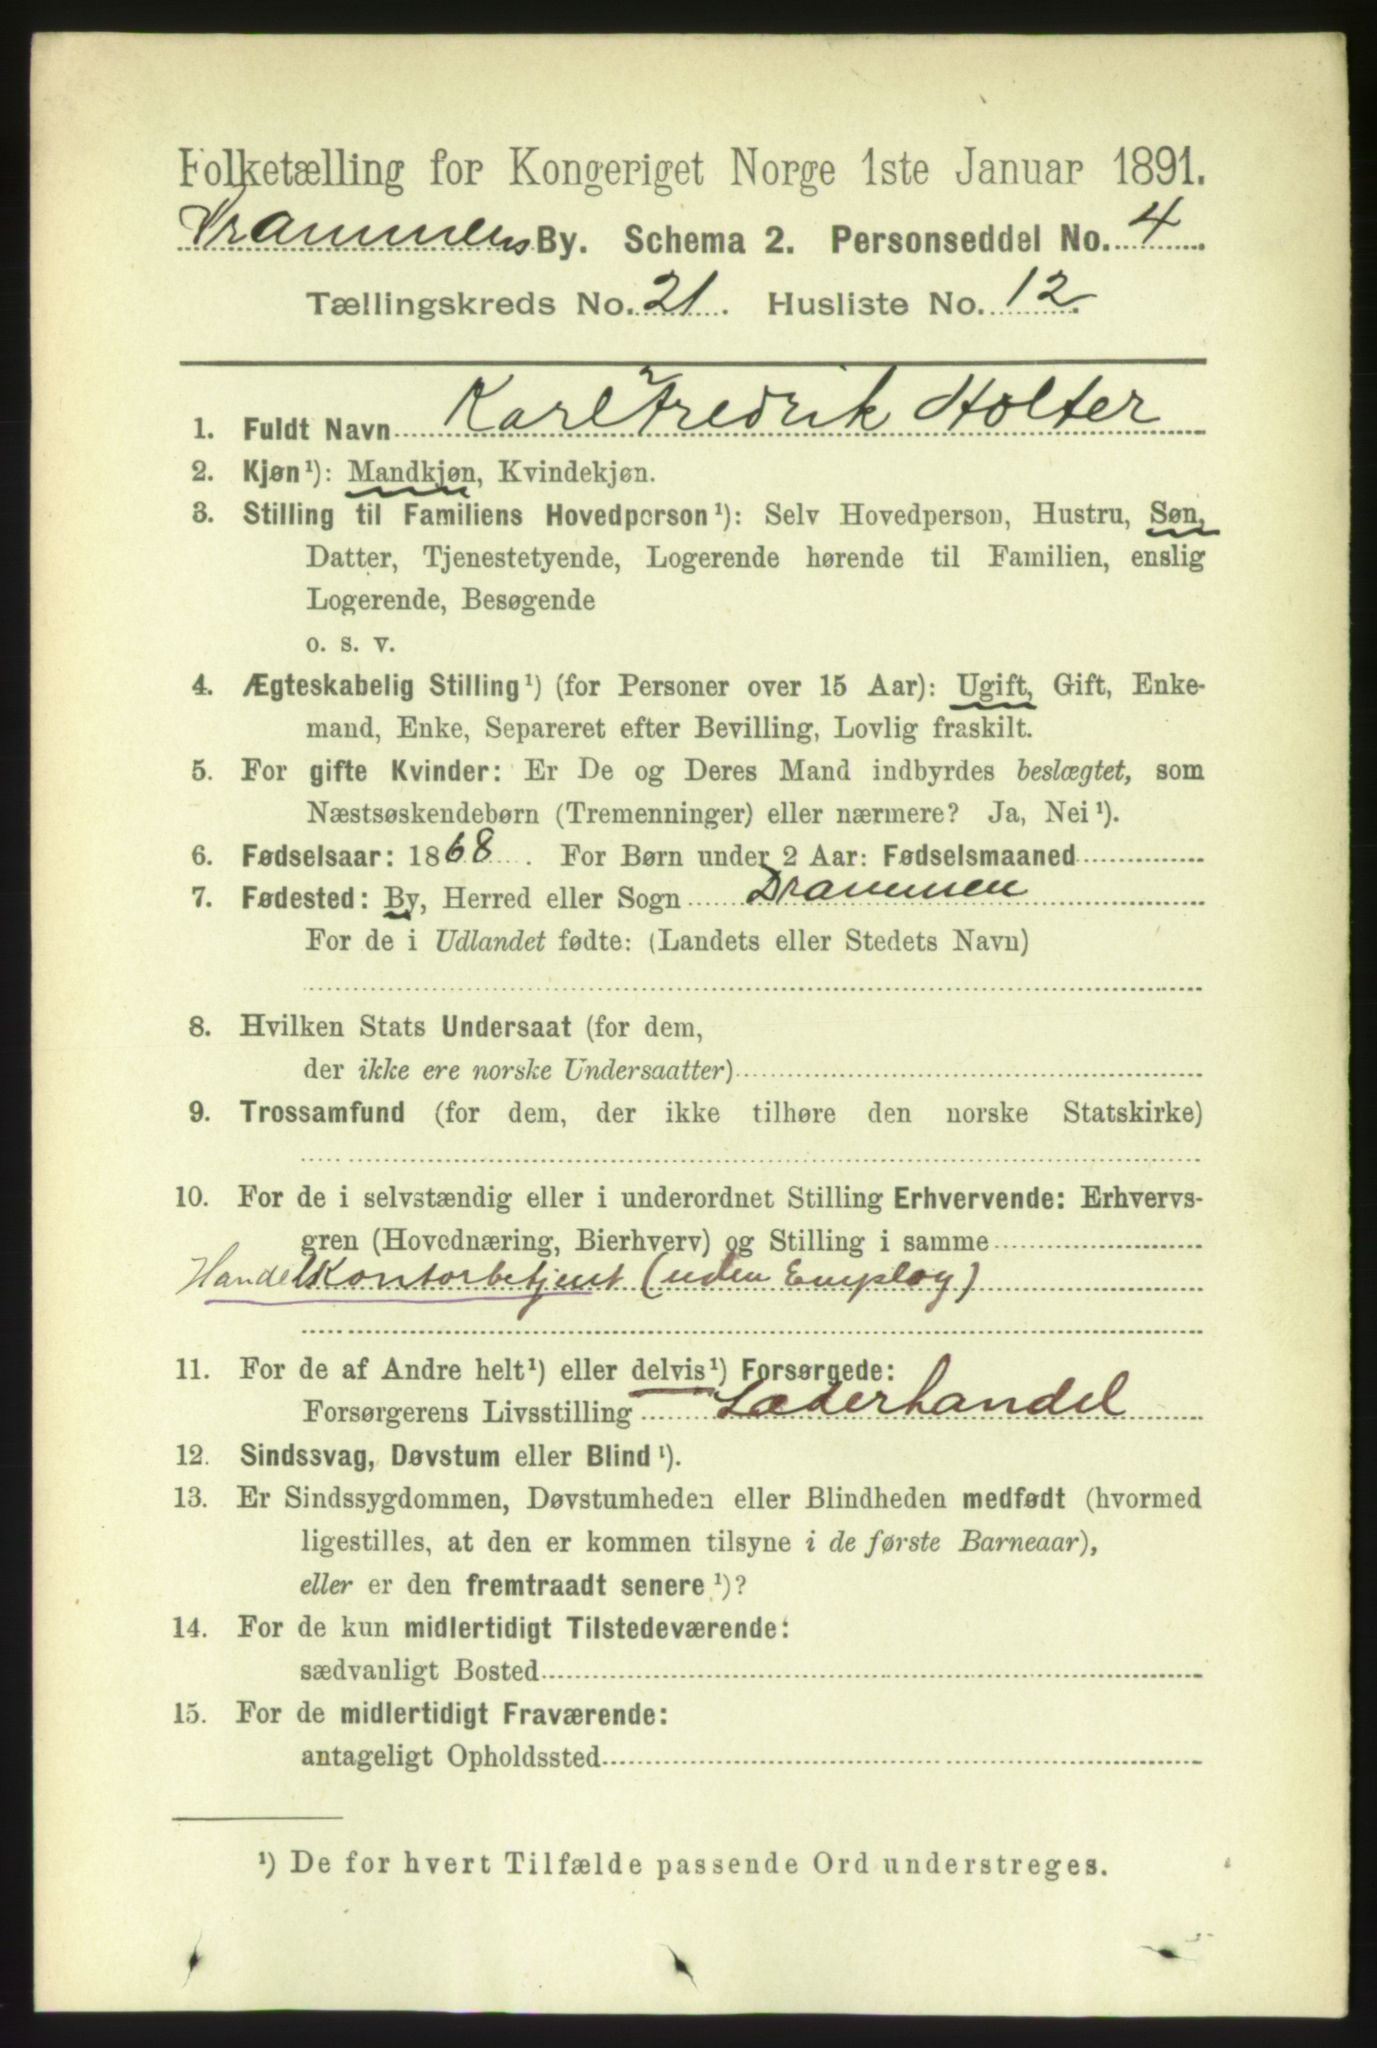 Folketælling for Kongeriget Norge 1ste Januar 1891.
Drammens By. Schema 2. Personseddel No. 4
Tællingskreds No. 21. Husliste No. 12.
1. Fuldt Navn Karl Fredrik Holter
2. Kjøn¹): Mandkjøn, Kvindekjøn.
3. Stilling til Familiens Hovedperson¹): Selv Hovedperson, Hustru, Søn,
Datter, Tjenestetyende, Logerende hørende til Familien, enslig
Logerende, Besøgende
o. s. v.
4. Ægteskabelig Stilling¹) (for Personer over 15 Aar): Ugift, Gift, Enke-
mand, Enke, Separeret efter Bevilling, Lovlig fraskilt.
5. For gifte Kvinder: Er De og Deres Mand indbyrdes beslægtet, som
Næstsøskendebørn (Tremenninger) eller nærmere? Ja, Nei¹).
6. Fødselsaar: 1868. For Børn under 2 Aar: Fødselsmaaned
7. Fødested: By, Herred eller Sogn Drammen
For de i Udlandet fødte: (Landets eller Stedets Navn)
8. Hvilken Stats Undersaat (for dem,
der ikke ere norske Undersaatter)
9. Trossamfund (for dem, der ikke tilhøre den norske Statskirke)
10. For de i selvstændig eller i underordnet Stilling Erhvervende: Erhvervs-
gren (Hovednæring, Bierhverv) og Stilling i samme
Handelskontorbetjent (uden Employ)
11. For de af Andre helt¹) eller delvis¹) Forsørgede:
Forsørgerens Livsstilling Læderhandel
12. Sindssvag, Døvstum eller Blind¹).
13. Er Sindssygdommen, Døvstumheden eller Blindheden medfødt (hvormed
ligestilles, at den er kommen tilsyne i de første Barneaar),
eller er den fremtraadt senere¹)?
14. For de kun midlertidigt Tilstedeværende:
sædvanligt Bosted
15. For de midlertidigt Fraværende:
antageligt Opholdssted
¹) De for hvert Tilfælde passende Ord understreges.